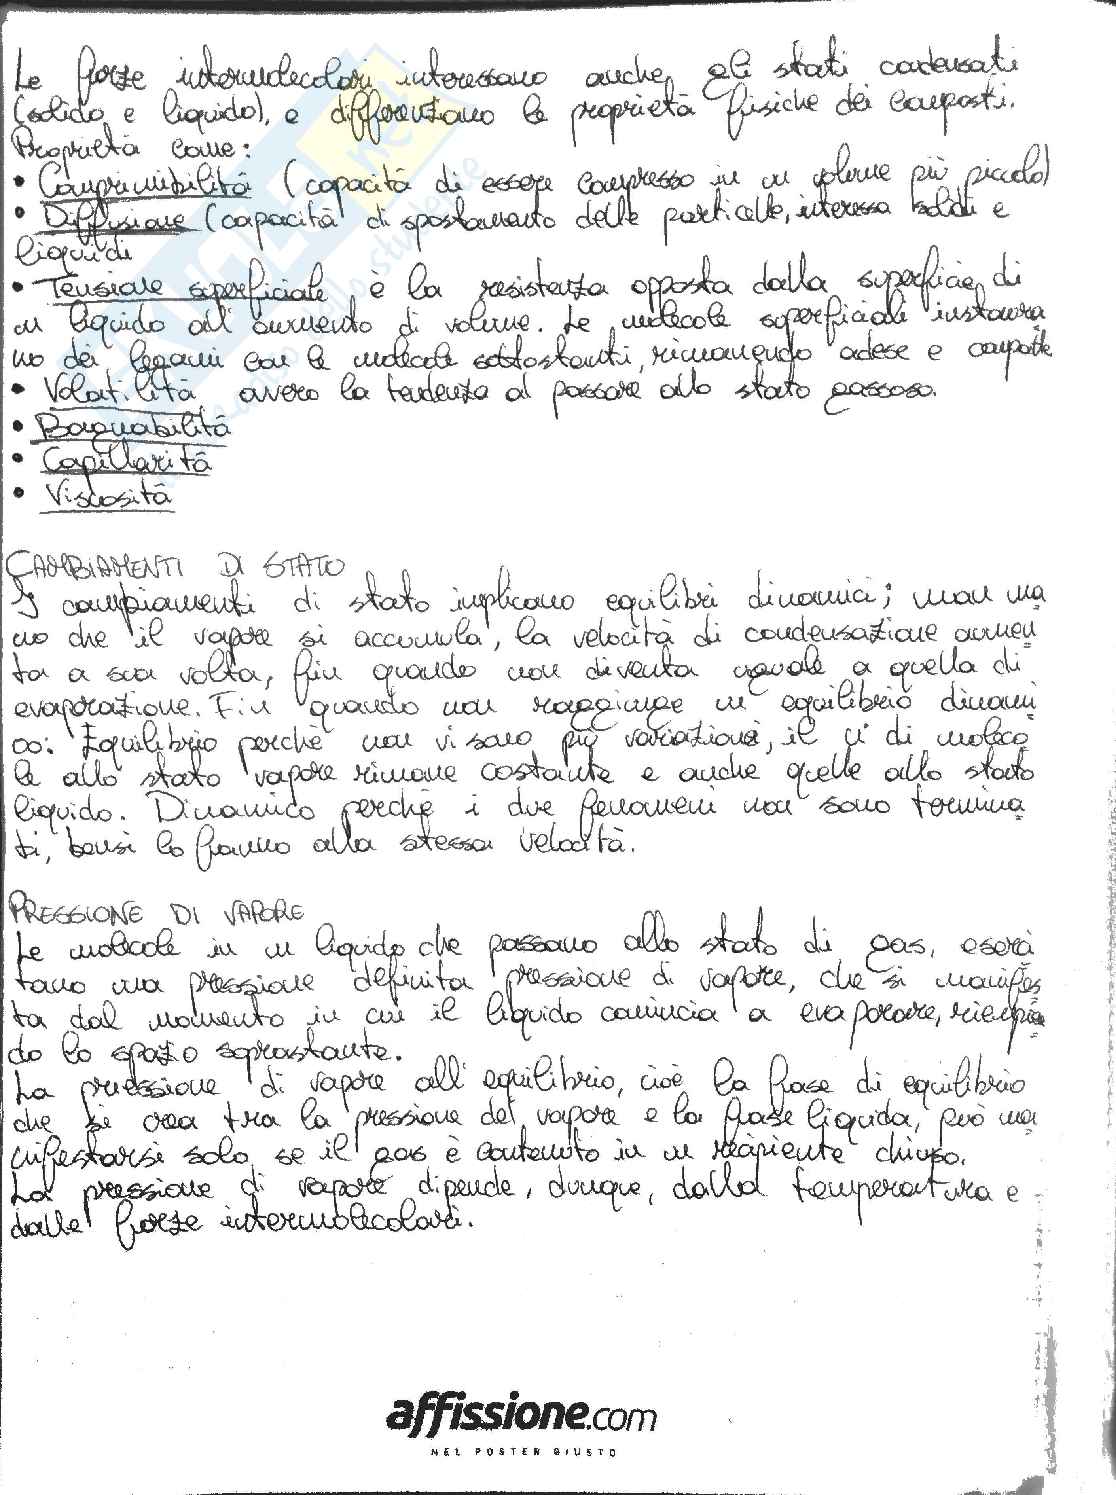 Le forze intermolecolari interessano anche gli stati condensati
(solido e liquido), e differenziano le proprietà fisiche dei composti.
Proprietà come:
• Comprimibilità (capacità di essere compresso in un volume più piccolo)
• Diffusione (capacità di spostamento delle particelle, interessa solidi e
liquidi
• Tensione superficiale, è la resistenza opposta dalla superficie di
un liquido all'aumento di volume. Le molecole superficiali instaura
no dei legami con le molecole sottostanti, rimanendo adese e compatte
• Volatilità, ovvero la tendenza al passare allo stato gassoso.
• Bagnabilità
• Capillarità
• Viscosità
CAMBIAMENTI DI STATO
I cambiamenti di stato implicano equilibri dinamici; man ma
no che il vapore si accumula, la velocità di condensazione aumen
ta a sua volta, fin quando non diventa uguale a quella di
evaporazione. Fin quando non raggiunge un equilibrio dinami
co: Equilibrio perchè non vi sono più variazioni, il n° di moleco
le allo stato vapore rimane costante e anche quelle allo stato
liquido. Dinamico perchè i due fenomeni non sono termina
ti, bensì lo fanno alla stessa velocità.
PRESSIONE DI VAPORE
Le molecole in un liquido che passano allo stato di gas, eserci
tano una pressione definita pressione di vapore, che si manifes
ta dal momento in cui il liquido comincia a evaporare, riempien
do lo spazio soprastante.
La pressione di vapore all'equilibrio, cioè la fase di equilibrio
che si crea tra la pressione del vapore e la fase liquida, può ma
nifestarsi solo se il gas è contenuto in un recipiente chiuso.
La pressione di vapore dipende, dunque, dalla temperatura e
dalle forze intermolecolari.
affissione.com
NEL POSTER GIUSTO